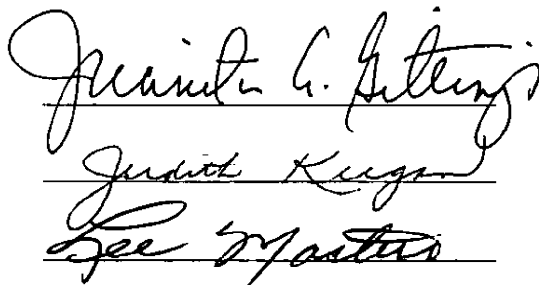 Juanita A. Gittings
Judith Keegan
Lee Mastero